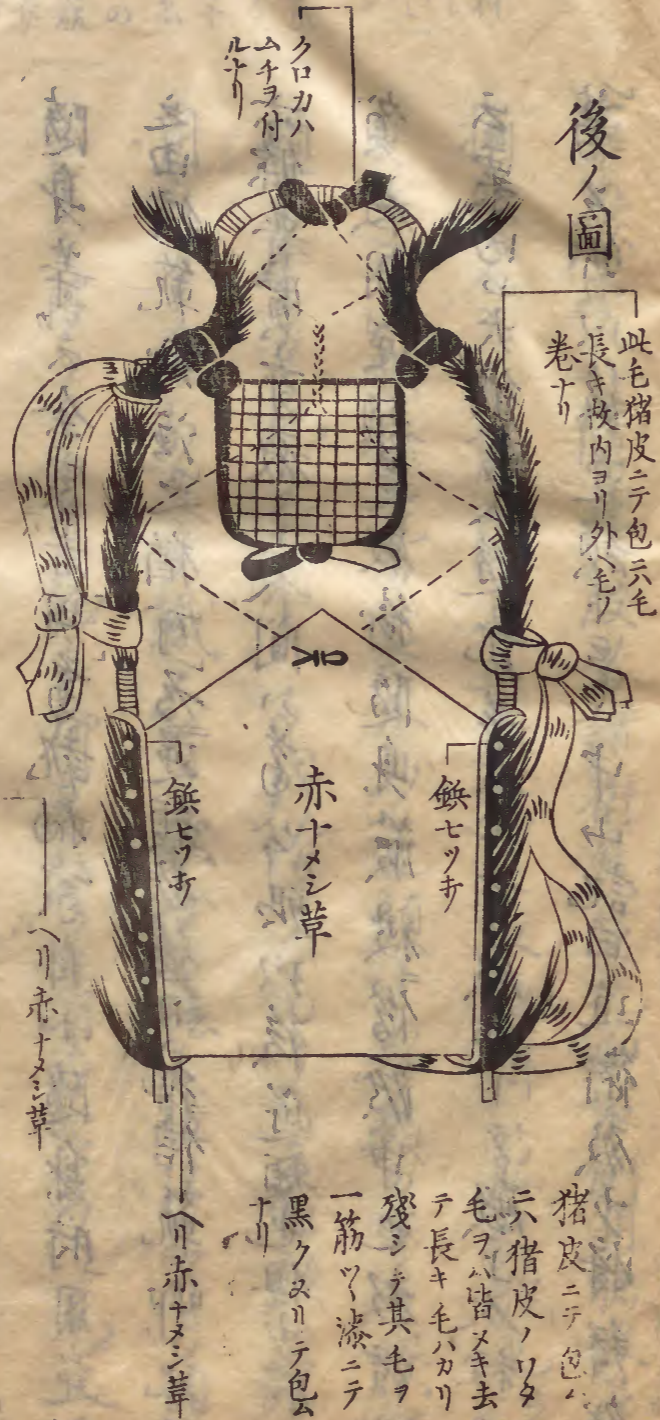 後ノ圖
クロカハ
ムチヲ付
ルナリ
此毛猪皮ニテ包六毛
長キ故内ヨリ外ヘ毛ノ
巻ナリ
鋲七ツ打
赤ナメシ革
鋲七ツ打
ヘリ赤ナメシ革
ヘリ赤ナメシ革
猪皮ニテ包ム
ニハ猪皮ノワタ
毛ヲハ皆ヌキ去
テ長キ毛ハカリ
残シテ其毛ヲ
一筋ツヽ漆ニテ
黒クヌリテ包ム
ナリ